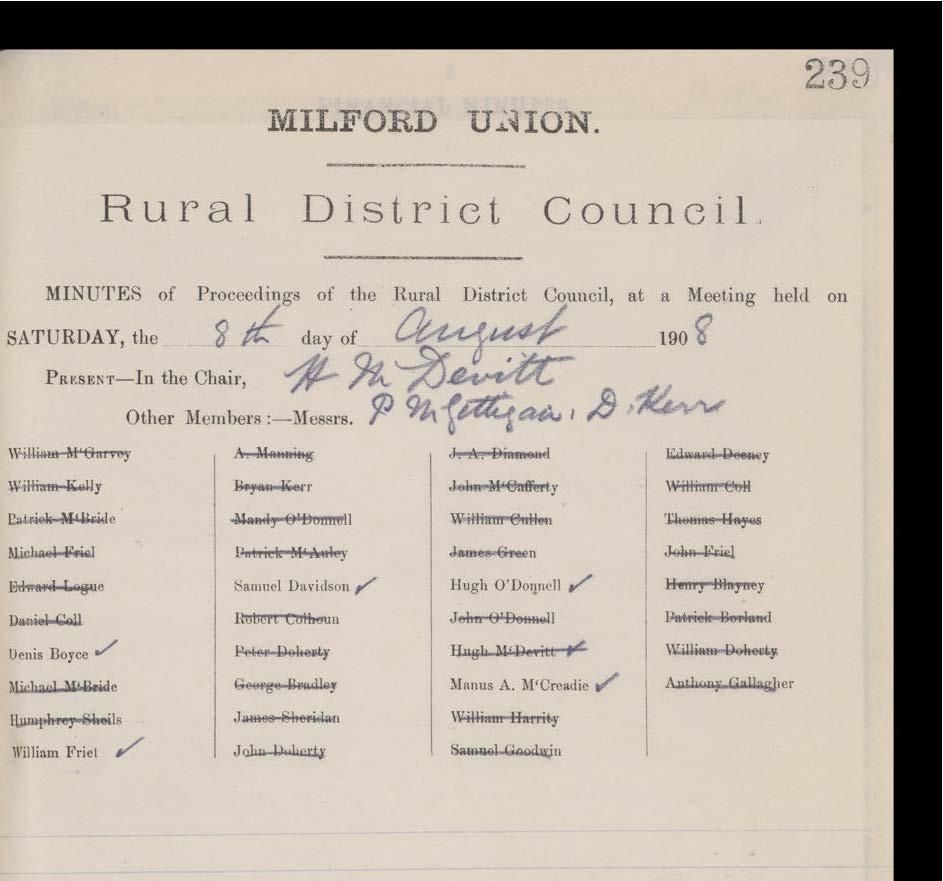 239
MILFORD UNION.
Rural District Council.
MINUTES of Proceedings of the Rural District Council, at a Meeting held on
SATURDAY, the 8th day of August 1908
PRESENT—In the Chair, H McDevitt
Other Members:—Messrs. P McGettigan, D. Kerr
William M'Garvey A. Manning J. A. Diamond Edward Deeney
William Kelly Bryan Kerr John M'Cafferty William Coll
Patrick M'Bride Mandy O'Donnell William Cullen Thomas Hayes
Michael Friel Patrick M'Auley James Green John Friel
Edward Logue Samuel Davidson ✓ Hugh O'Donnell ✓ Henry Blayney
Daniel Coll Robert Colhoun John O'Donnell Patrick Borland
Denis Boyce ✓ Peter Doherty Hugh M'Devitt ✓ William Doherty
Michael M'Bride George Bradley Manus A. M'Creadie ✓ Anthony Gallagher
Humphrey Sheils James Sheridan William Harrity
William Friel ✓ John Doherty Samuel Goodwin